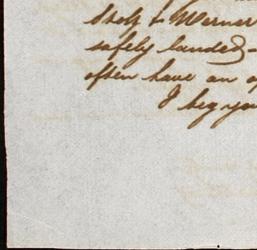 Shelf to Werner
safely landed –
often have an o
I beg you